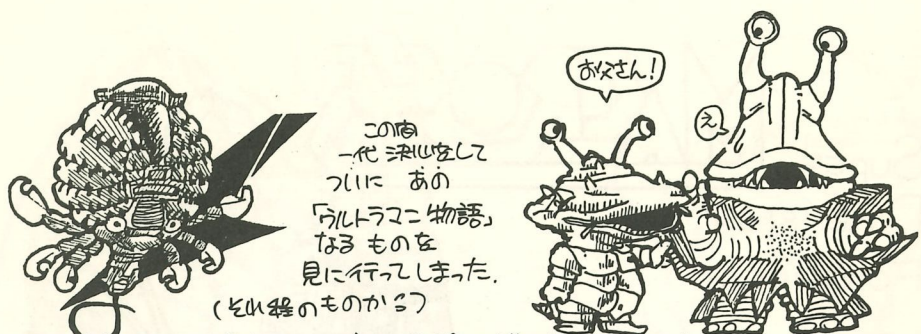 この間
一代決心をして
ついに あの
「ウルトラマニ物語」
なる ものを
見に行ってしまった.
(それ程のものかよ?)
お父さん!
え